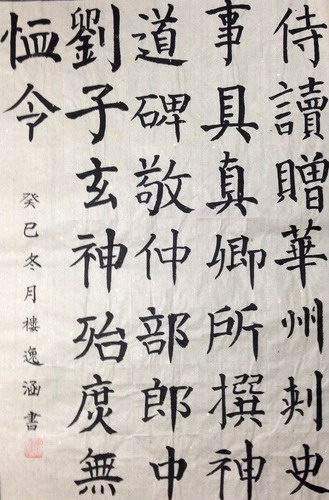 侍讀贈華州刺史
事具真卿所撰神
道碑敬仲部郎中
劉子玄神殆庶無
恤令
癸巳冬月樓逸涵書